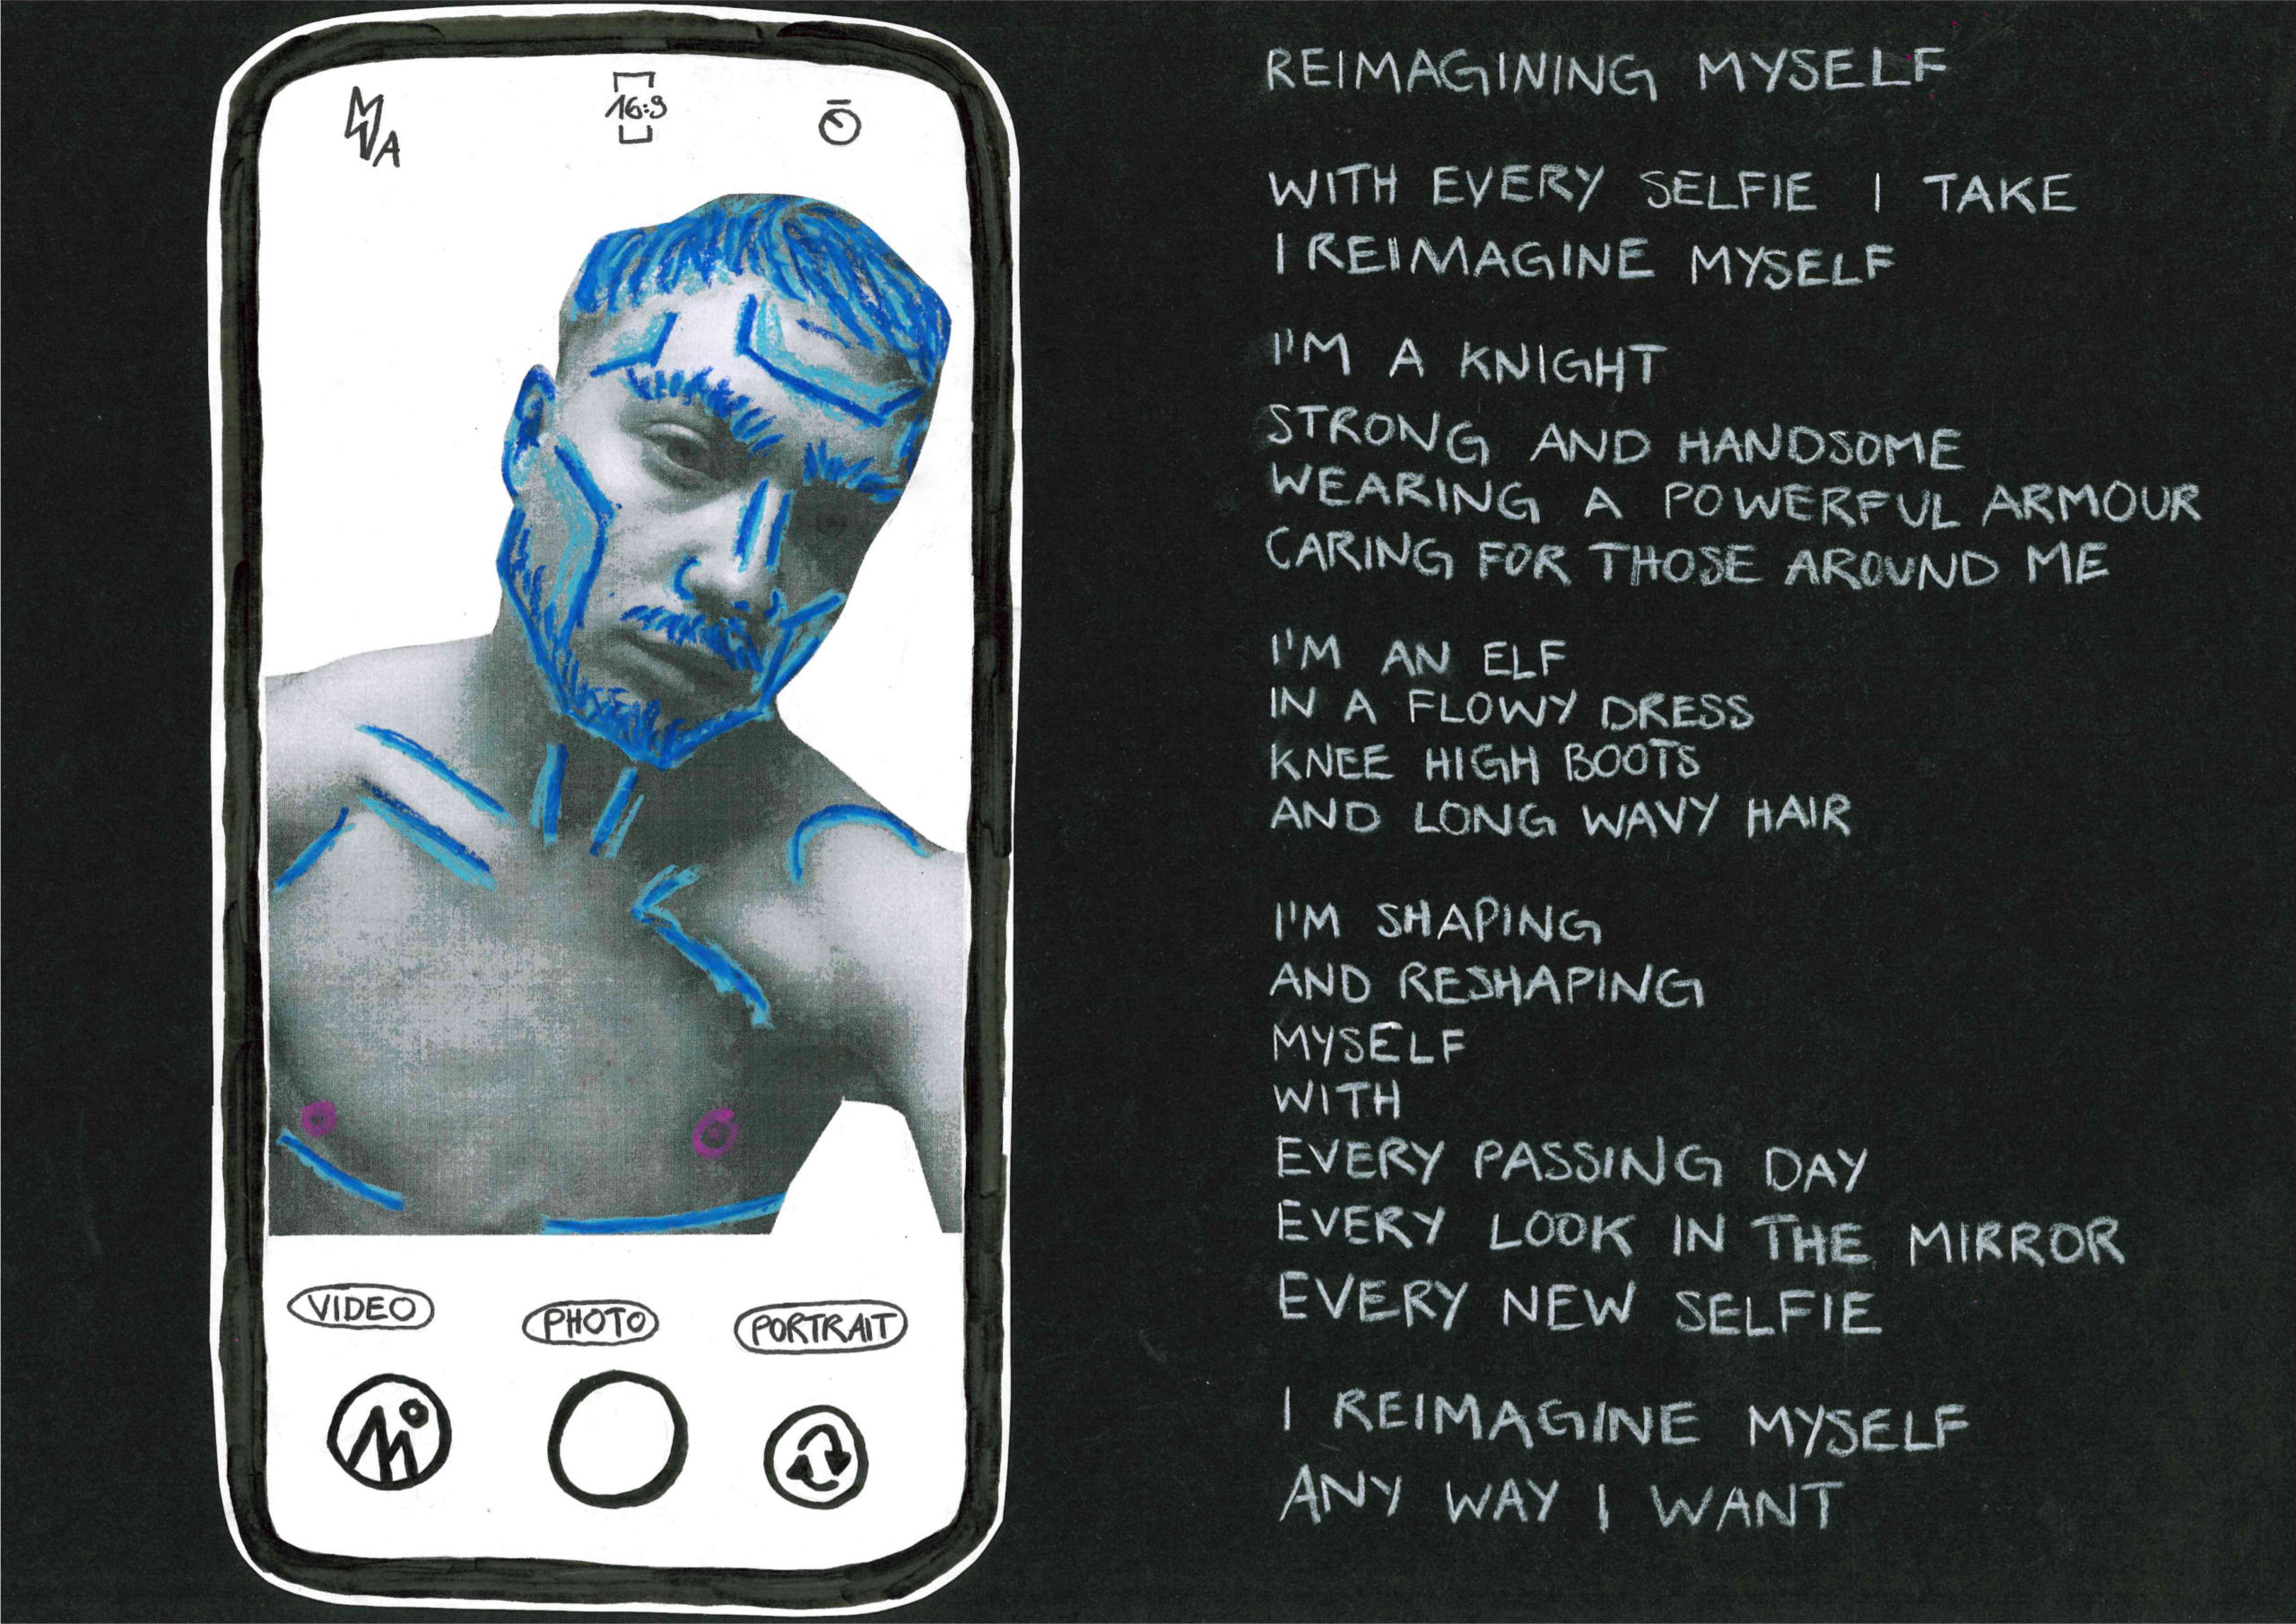 A
16:9
VIDEO
PHOTO
PORTRAIT
REIMAGINING MYSELF
WITH EVERY SELFIE I TAKE
I REIMAGINE MYSELF
I'M A KNIGHT
STRONG AND HANDSOME
WEARING A POWERFUL ARMOUR
CARING FOR THOSE AROUND ME
I'M AN ELF
IN A FLOWY DRESS
KNEE HIGH BOOTS
AND LONG WAVY HAIR
I'M SHAPING
AND RESHAPING
MYSELF
WITH
EVERY PASSING DAY
EVERY LOOK IN THE MIRROR
EVERY NEW SELFIE
I REIMAGINE MYSELF
ANY WAY I WANT